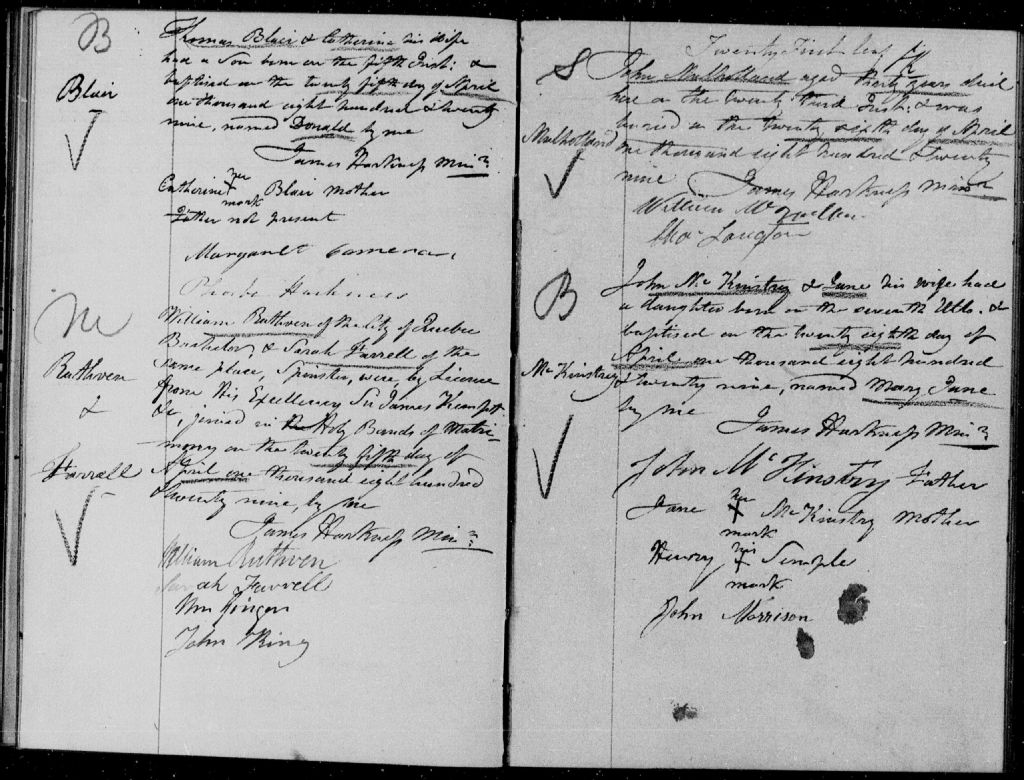 B
Blair
Thomas Blair & Catherine his Wife
had a Son born on the fifth Inst: &
baptised on the twenty fifth day of April
one thousand eight hundred & twenty
nine, named Donald by me
James Harkness Minr
her
Catherine + Blair Mother
mark
Father not present
Margaret Cameron
Phoebe Harkness
M
Ruthven
&
Farrell
William Ruthven of the City of Quebec
Bachelor, & Sarah Farrell of the
same place, Spinster, were, by Licence
from His Excellency Sir James Kempt
&c, joined in Holy Bands of Matri-
mony on the twenty fifth day of
April one thousand eight hundred
& twenty nine, by me
James Harkness Minr
William Ruthven
Sarah Farrell
Wm
John King
Twenty First leaf
S
Mulholland
John Mulholland aged thirty years died
here on the twenty third Inst. & was
buried on the twenty sixth day of April
one thousand eight hundred & twenty
nine James Harkness Minr
William
Langton
B
McKinstry
John McKinstry & Jane his wife had
a daughter born on the seventh Ulto. &
baptised on the twenty eighth day of
April one thousand eight hundred
& twenty nine, named Mary Jane
by me
James Harkness Minr
John McKinstry Father
her
Jane + McKinstry mother
mark
his
Henry + Semple
mark
John Morrison